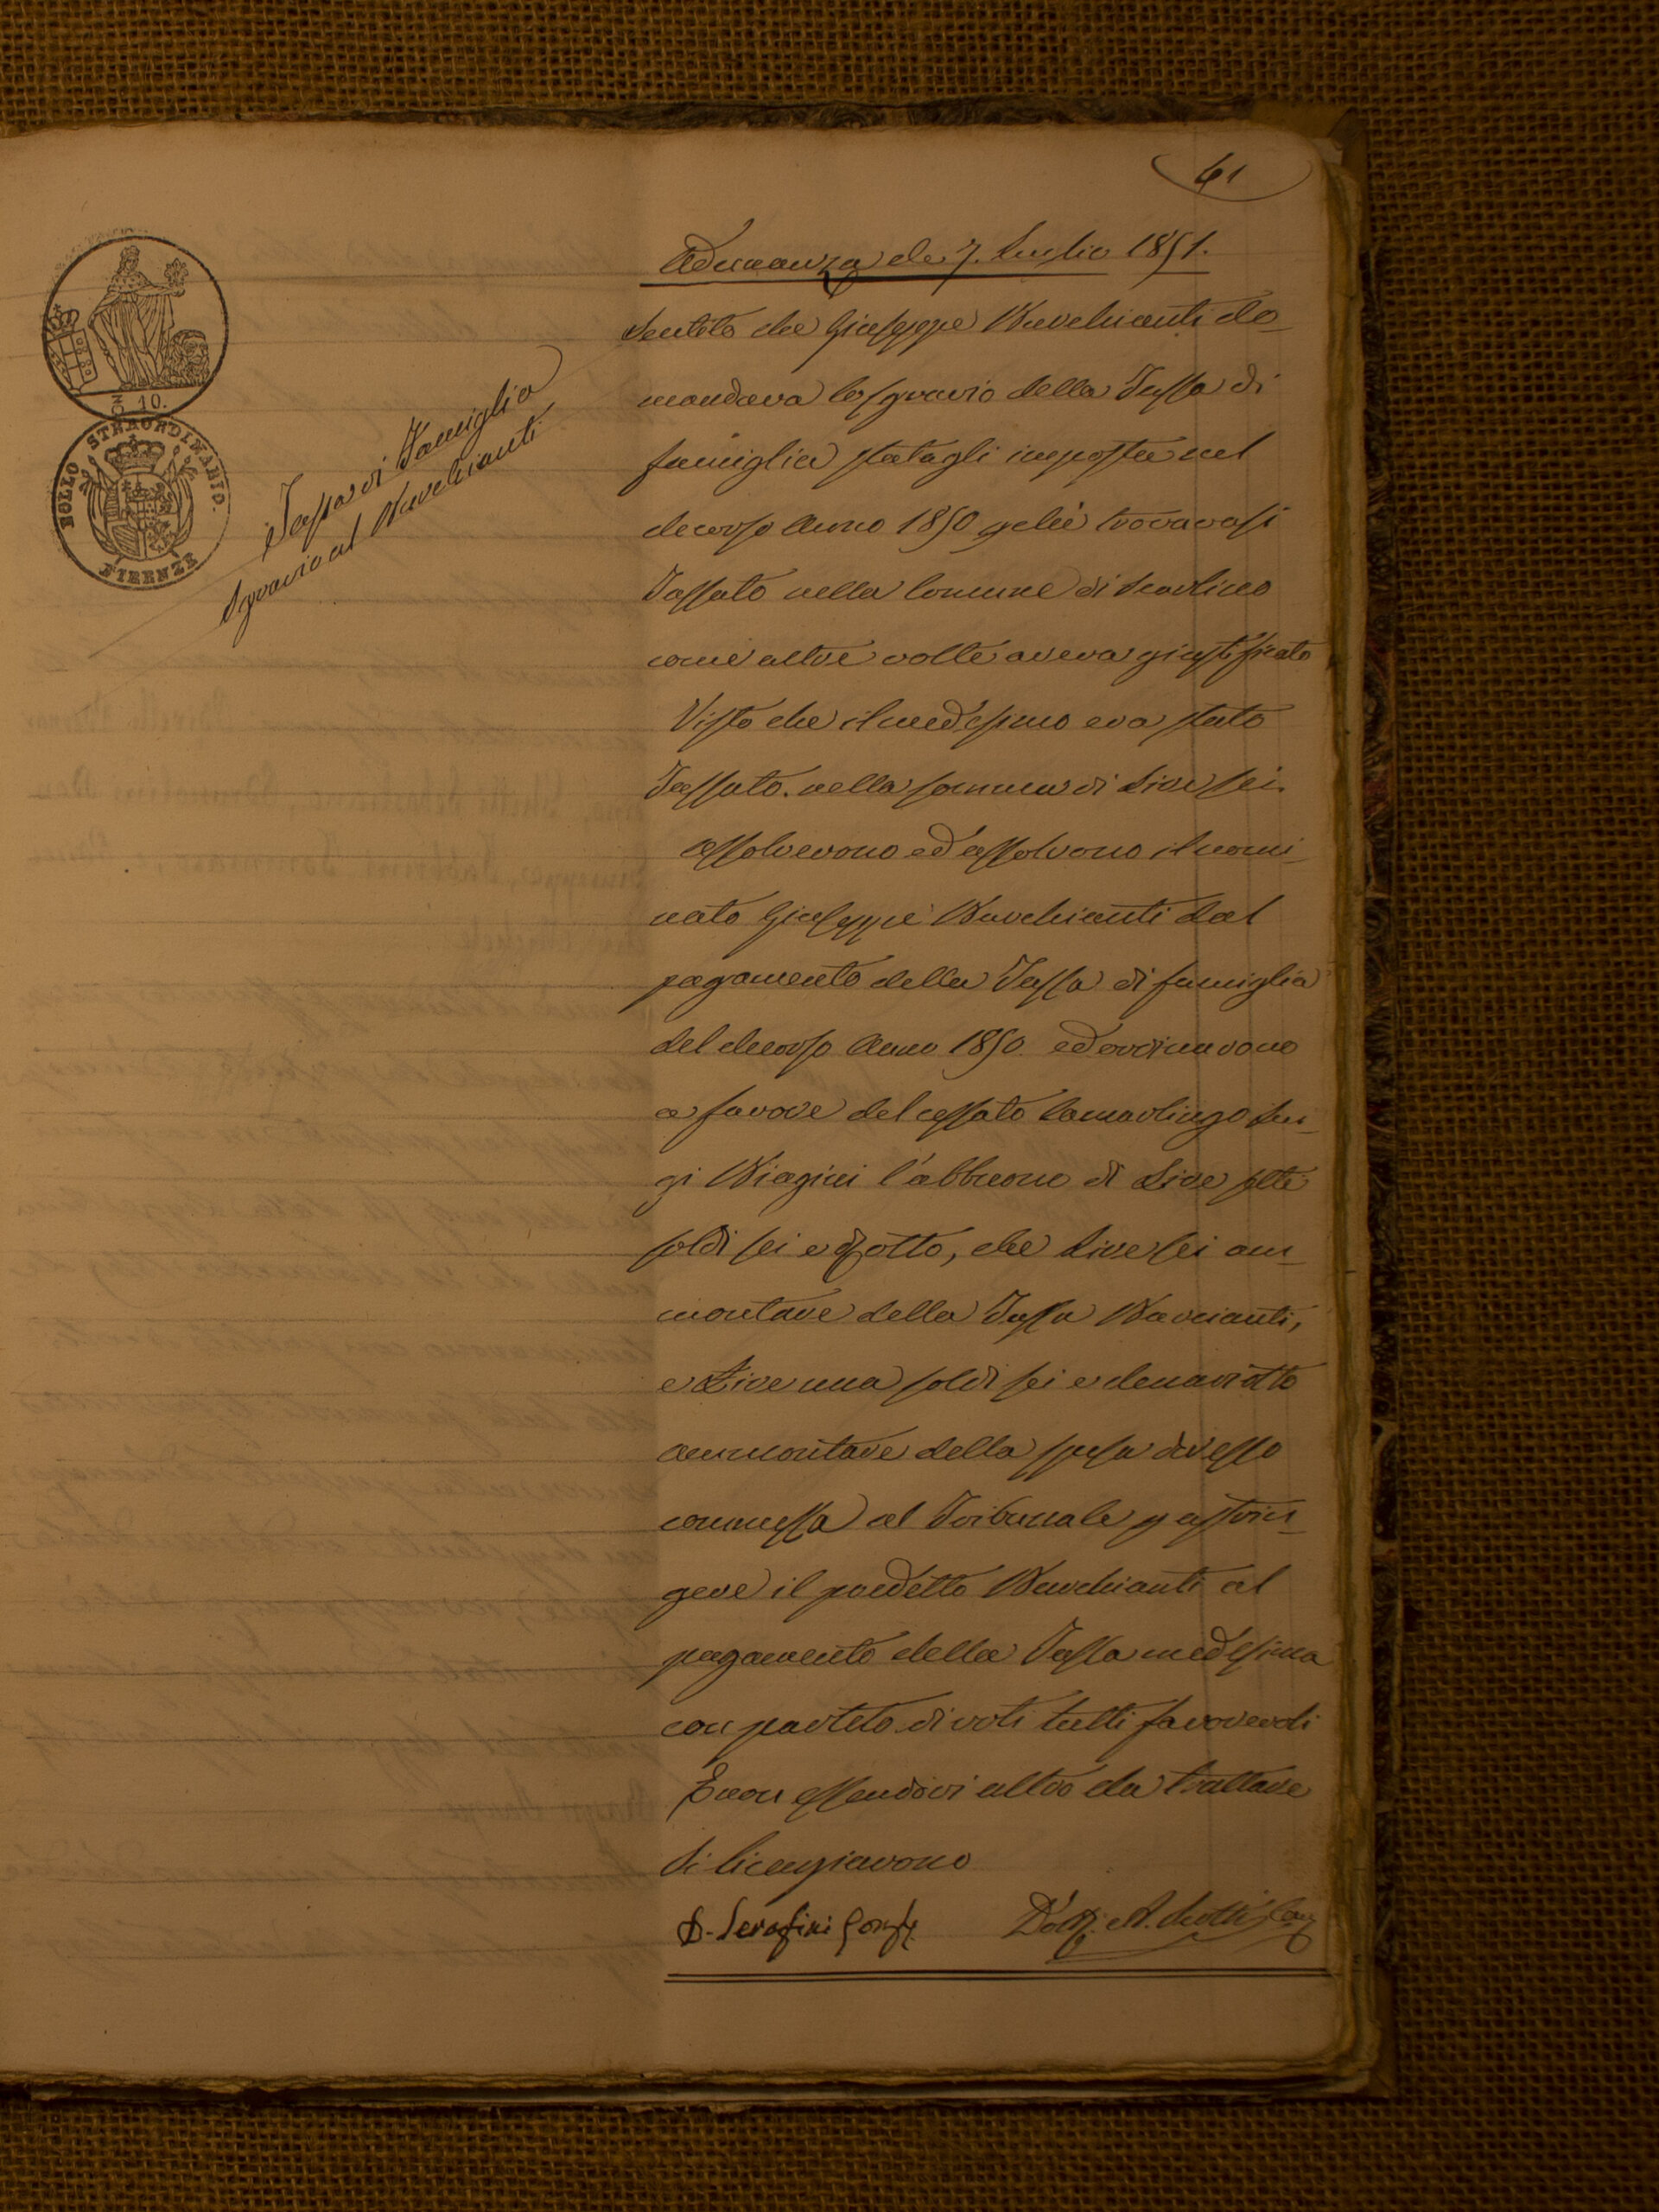 61
Adunanza de 7. Luglio 1851.
Sentito che Giuseppe Barchianti do-
mandava lo sgravio della Tassa di
famiglia statagli imposta nel
decorso Anno 1850 pchè trovavasi
Tassato nella Comune di Scarlino
come altre volte aveva giustificato
Visto che il medesimo era stato
Tassato nella somma di Lire sei.
Assolverono ed assolvono il nomi-
nato Giuseppe Barchianti dal
pagamento della Tassa di famiglia
del decorso Anno 1850 ed ordinarono
a favore del cessato Camarlingo Lui-
gi Biagini l'abbuono di Lire sette
soldi sei e d otto, che Lire sei am-
montare della Tassa Barcianti,
e Lire una soldi sei e denari otto
ammontare della spesa da esso
commessa al Tribunale p astrin-
gere il predetto Barchianti al
pagamento della Tassa medesima
con partito di voti tutti favorevoli
E non essendovi altro da trattare
si licenziarono
D. Serafini Gonf.
Dott. A.
Tassa di Famiglia
Sgravio al Barchianti
10.
BOLLO STRAORDINARIO.
FIRENZE